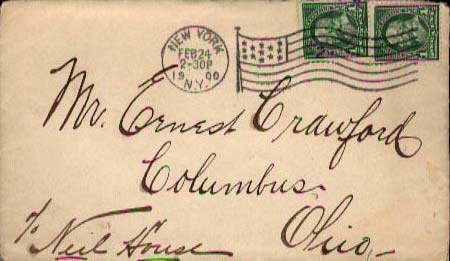 NEW YORK
FEB 24
2-30P
1900
N.Y.
Mr. Ernest Crawford
Columbus
Ohio
c/o Neil House